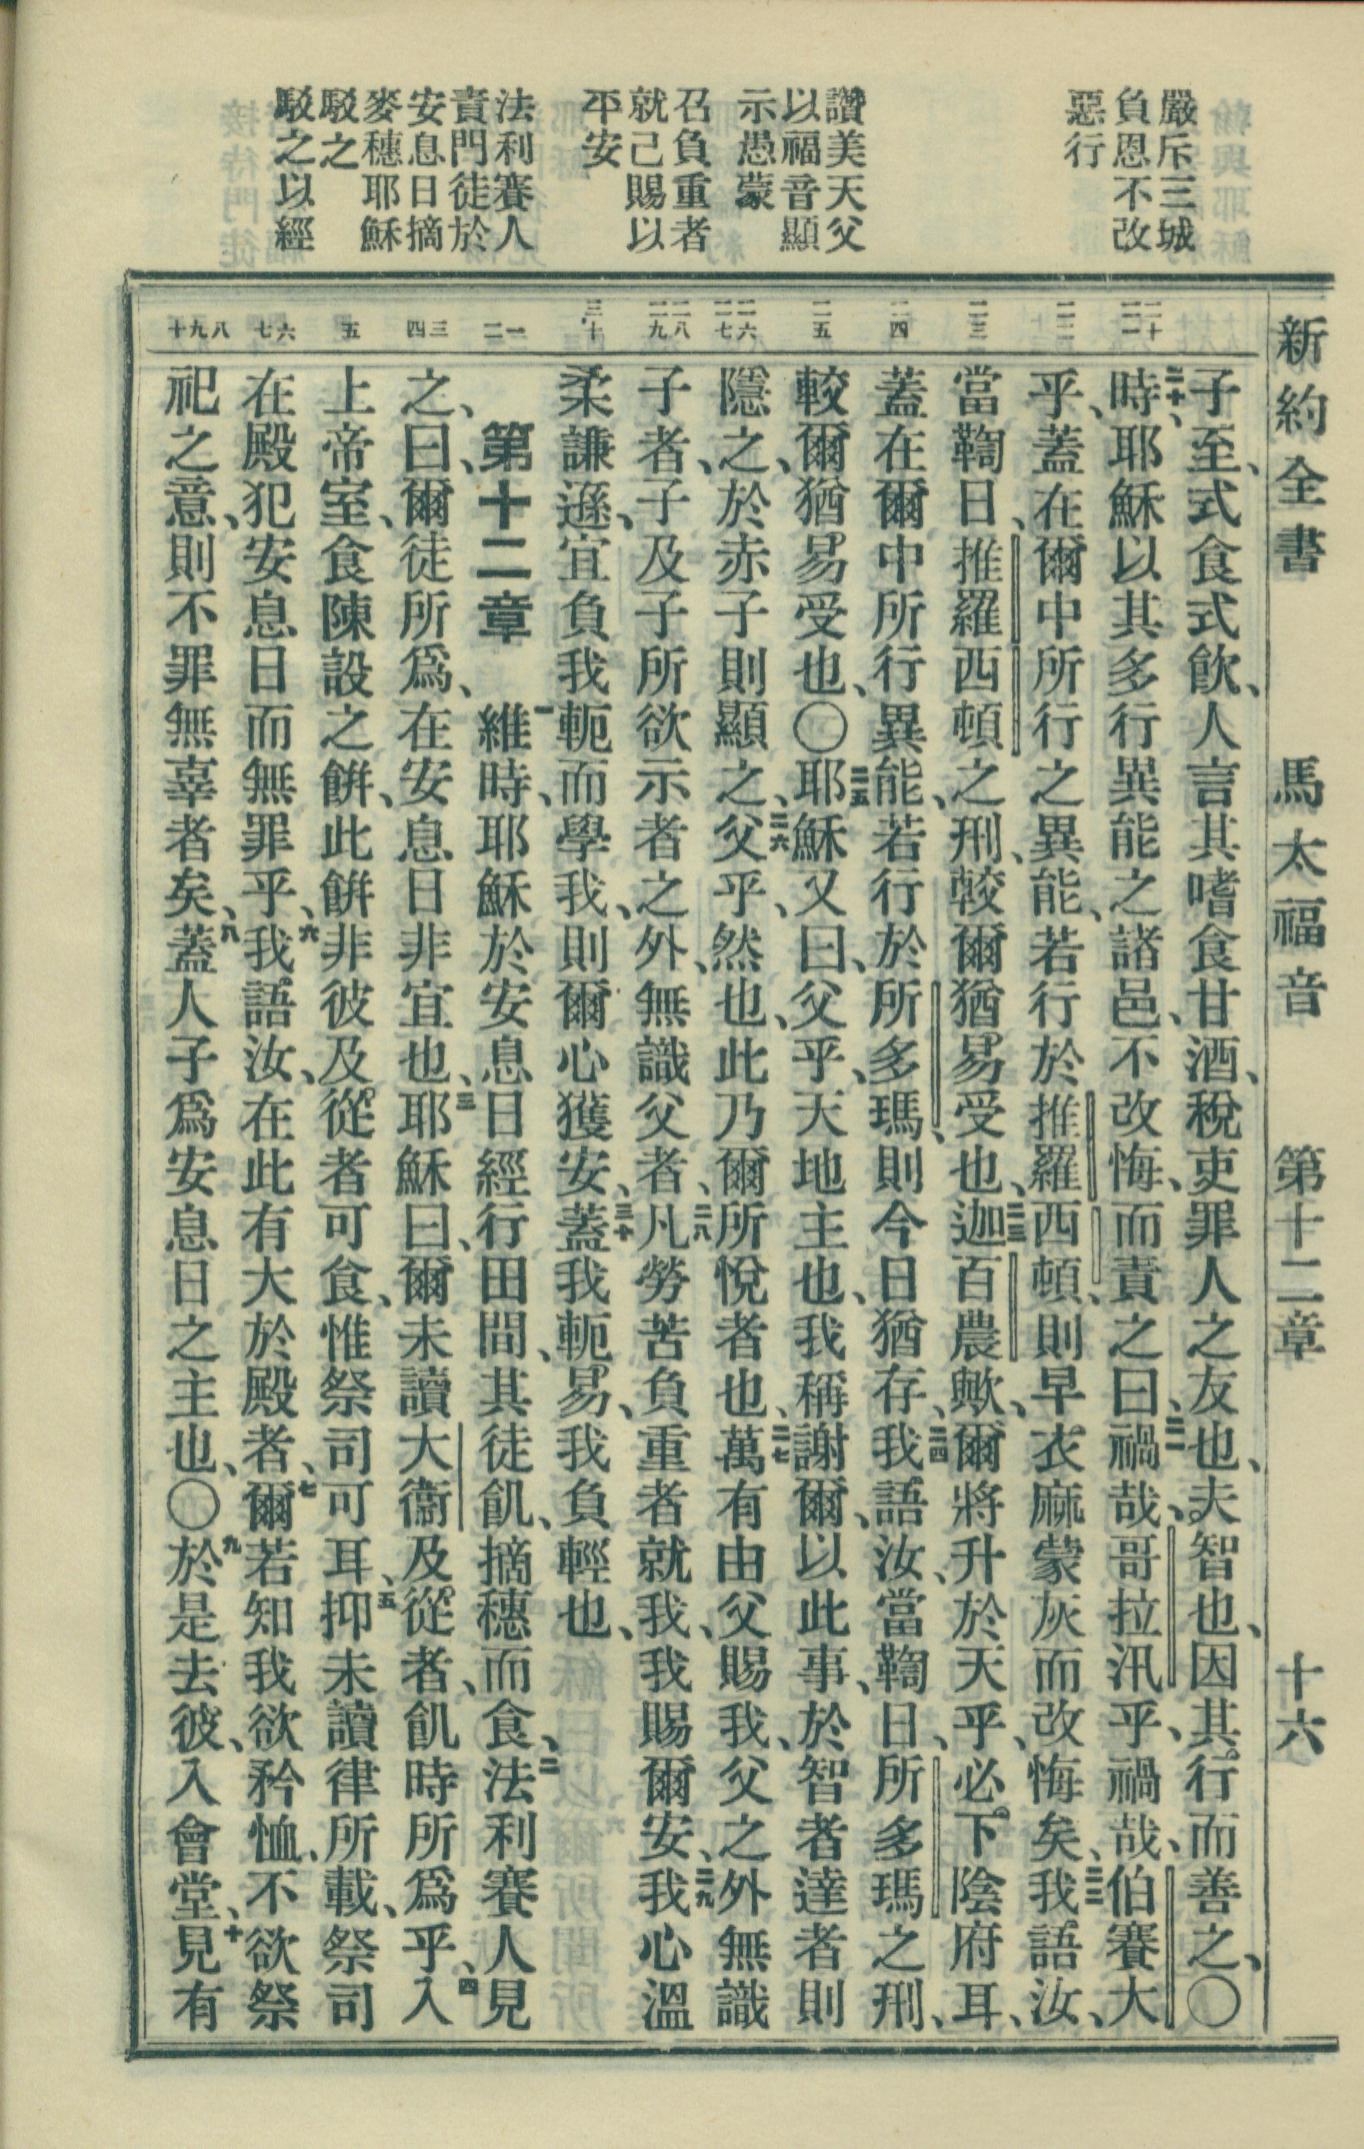 新約全書 馬太福音 第十二章 十六
嚴斥三城
負恩不改
惡行
讚美天父
以福音顯
示愚蒙
召負重者
就己賜以
平安
法利賽人
責門徒於
安息日摘
麥穗耶穌
駁之
駁之以經
二十 二一
二二
二三
二四
二五
二六 二七
二八 二九
三十
一 二
三 四
五
六 七
八 九 十
子至、式食式飲、人言其嗜食甘酒、稅吏罪人之友也、夫智也、因其行而善之、〇
二十、時耶穌以其多行異能之諸邑、不改悔、而責之曰、二一禍哉、哥拉汛乎、禍哉、伯賽大
乎、蓋在爾中所行之異能、若行於推羅西頓、則早衣麻蒙灰而改悔矣、二二我語汝、
當鞫日、推羅西頓之刑、較爾猶易受也、二三迦百農歟、爾將升於天乎、必下陰府耳、
蓋在爾中所行異能、若行於所多瑪、則今日猶存、二四我語汝、當鞫日、所多瑪之刑、
較爾猶易受也、〇二五耶穌又曰、父乎、天地主也、我稱謝爾、以此事、於智者達者則
隱之、於赤子則顯之、二六父乎、然也、此乃爾所悅者也、二七萬有由父賜我、父之外無識
子者、子及子所欲示者之外、無識父者、二八凡勞苦負重者就我、我賜爾安、二九我心溫
柔謙遜、宜負我軛而學我、則爾心獲安、三十蓋我軛易、我負輕也、
第十二章 一維時、耶穌於安息日經行田間、其徒飢、摘穗而食、二法利賽人見
之、曰、爾徒所爲、在安息日非宜也、三耶穌曰、爾未讀大衞及從者、飢時所爲乎、四入
上帝室、食陳設之餅、此餅非彼及從者可食、惟祭司可耳、五抑未讀律所載、祭司
在殿犯安息日而無罪乎、六我語汝、在此有大於殿者、七爾若知我欲矜恤、不欲祭
祀之意、則不罪無辜者矣、八蓋人子爲安息日之主也、〇九於是去彼、入會堂、十見有